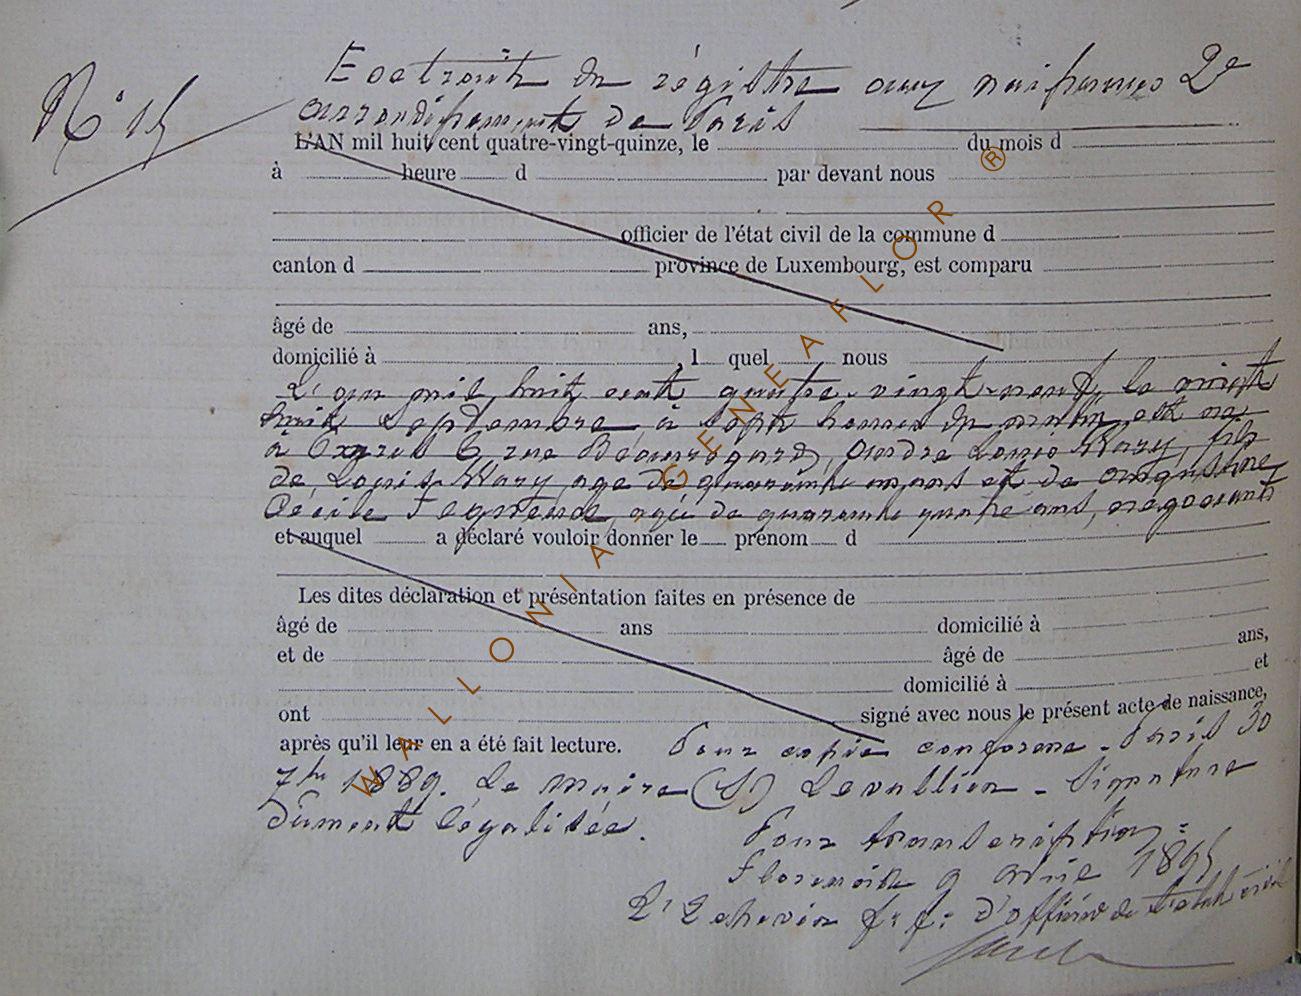 Nº 15
Extrait du régistre aux naissances 2e
arrondissement de Paris
L'AN mil huit cent quatre-vingt-quinze, le du mois d
à heure d par devant nous
officier de l'état civil de la commune d
canton d province de Luxembourg, est comparu
âgé de ans,
domicilié à , l quel nous
L'an mil huit cent quatre-vingt-neuf, le vingt
huit Septembre à sept heures du matin est né
à 6, rue Beauregard, André Louis Wary, fils
de Louis Wary, age de quarante ans et de
Cécile agée de quarante quatre ans, négociants
et auquel a déclaré vouloir donner le prénom d
Les dites déclaration et présentation faites en présence de
âgé de ans domicilié à
et de âgé de ans,
domicilié à et
ont signé avec nous le présent acte de naissance,
après qu'il leur en a été fait lecture. Pour copie conforme - Paris 30
7bre 1889. Le Maire (S) Levallien - Signature
dument légalisée.
Pour transcription =
9 1895
L' Echevin f.f. d'officier de l'etat civil
WALLONIA GENEAFLOR ®